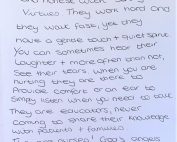 and honest work
virtues They work hard and
they walk fast, yet they
have a gentle touch + quiet spirit
You can sometimes hear their
laughter + more often than not,
see their tears when you are
hurting they are there to
Provide comfort or an ear to
Simply listen when you need to talk
They are educators, never
coming to share their knowledge
with patients + families
God's angels